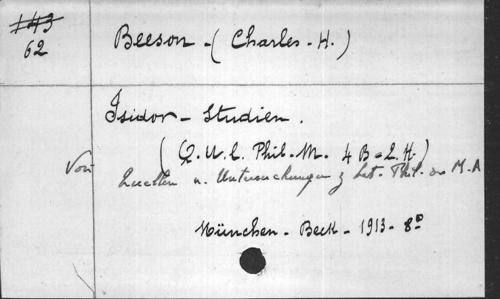 143
62
Beeson - (Charles - H.)
Isidor - Studien.
(Q. U. L. Phil. M. 4 B = 2. H.)
Voir Quellen u. Untersuchungen z Lat. Phil. des M. A
München - Beck - 1913 - 8°